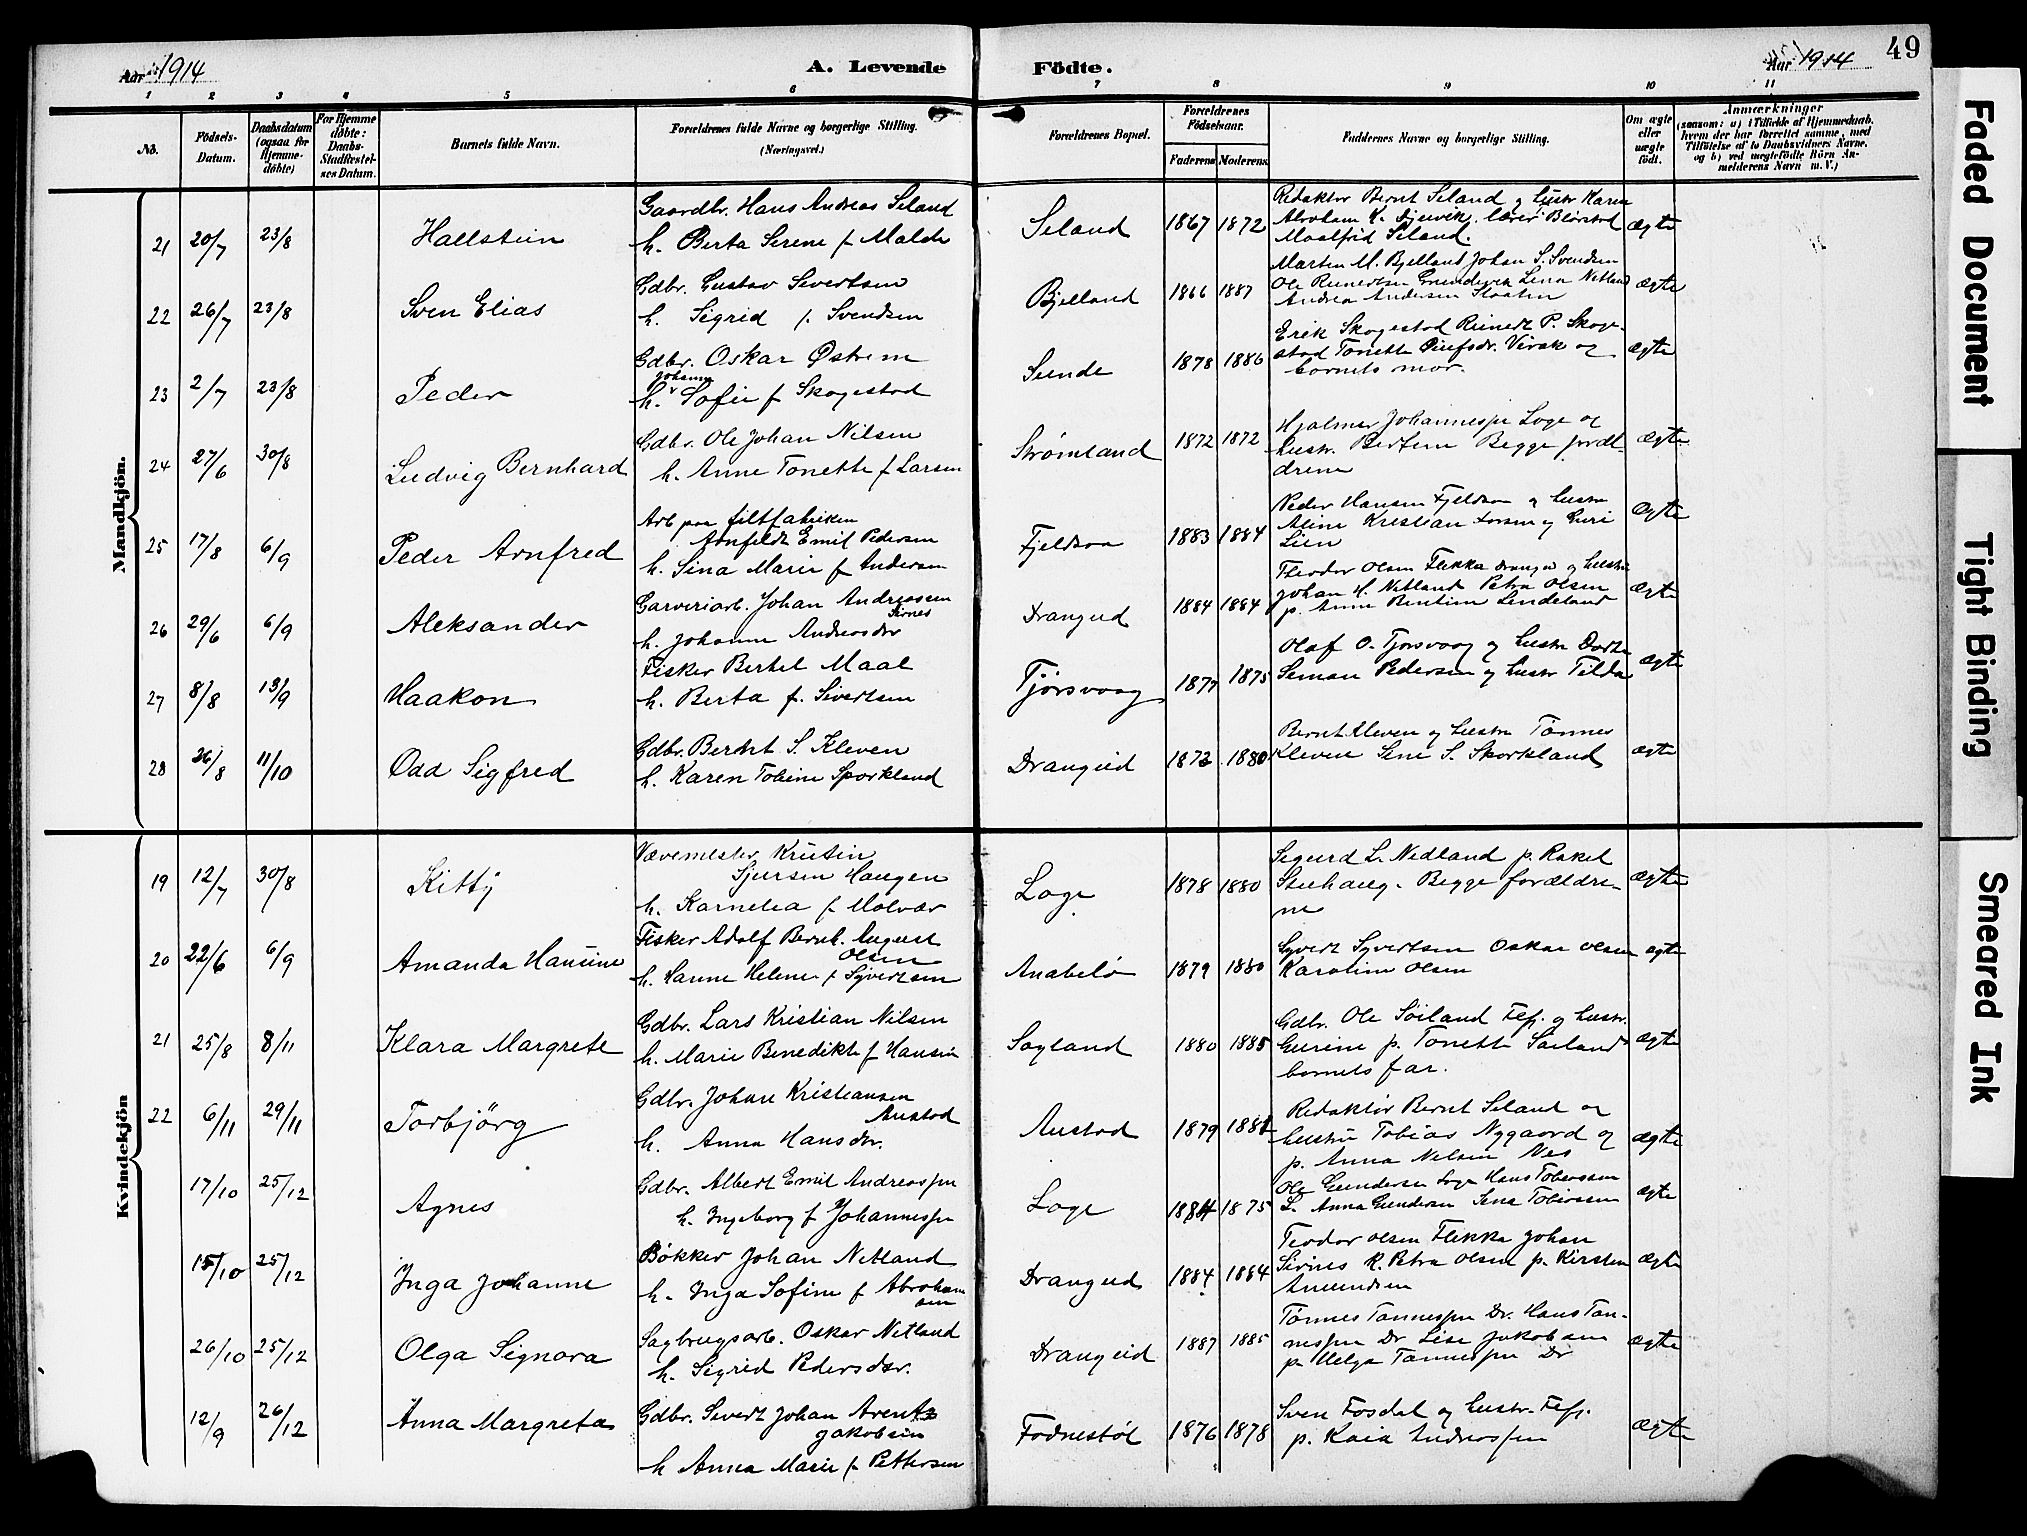 Aar 1914
A. Levende Födte.
Aar 1914
49
1 2 3 4 5 6 7 8 9 10 11
No.
Födsels-Datum.
Daabsdatum (ogsaa for Hjemmedöbte)
For Hjemmedöbte: Daabs-Stadfæstelses Datum.
Barnets fulde Navn.
Forældrenes fulde Navne og borgerlige Stilling.
(Næringsvei.)
Forældrenes Bopæl.
Forældrenes Födselsaar.
Faderens Moderens
Faddernes Navne og borgerlige Stilling.
Om ægte eller uægte födt.
Anmærkninger
(saasom: a) i Tilfælde af Hjemmedaab, hvem der har forrettet samme, med Tilföielse af to Daabsvidners Navne, og b) ved uægtefödte Börn Anmelderens Navn m. V.)
Mandkjön.
21 20/7 23/8 Hallstein
Gaardbr. Hans Andreas Seland
h. Berta Serene f Malde
Seland 1867 1872
Redaktør Bernt Seland og hustr Karen
Abraham K. Djuvik, lærer Blørstad
Maalfrid Seland.
ægte
22 26/7 23/8 Sven Elias
Gdbr. Gustav Severtsen
h. Sigrid f. Svendsen
Bjelland 1866 1887
Marten M. Bjelland Johan S. Svendsen
Ole Reinertsen Gundersen Lena Netland
Andrea Andersen Staalen
ægte
23 2/7 23/8 Peder
Gdbr. Oskar Østrem
h. Johanne Sofie f Skogestad
Sunde 1878 1886
Erik Skogestad Reinert P. Skoge-
stad Tonette Olufsdr. Virak og
barnets mor.
ægte
24 27/6 30/8 Ludvig Bernhard
Gdbr. Ole Johan Nilsen
h. Anne Tonette f Larsen
Strømland 1872 1872
Hjalmer Johannesen Loge og
hustr. Bertine Begge foræl-
drene
ægte
25 17/8 6/9 Peder Arnfred
Arb paa filtfabriken
Arnfeldt Emil Pedersen
h. Sina Marie f Andersen
Fjeldsaa 1883 1884
Peder Hansen Fjeldsaa og hustru
Aline Kristian Larsen og Guri
Lien
ægte
26 29/6 6/9 Aleksander
Garveriarb. Johan Andreassen
Sirnes
h. Johanne Andreasdr
Drangeid 1884 1884
Theodor Olsen Flikka Drangeid og hustru
Johan H. Netland Petra Olsen
p. Anne Bentine Lindeland
ægte
27 8/8 13/9 Haakon
Fisker Bertel Maal
h. Berta f. Sivertsen
Tjørsvaag 1877 1875
Olaf O. Tjørsvaag og hustr Dorte
Simon Pedersen og hustr Tilda
ægte
28 26/8 11/10 Odd Sigfred
Gdbr. Bernt S. Kleven
h. Karen Tobine Sporkland
Drangeid 1872 1880
Bernt Kleven og hustru Tønnes
Kleven Sine S. Skorkland
ægte
Kvindekjön
19 12/7 30/8 Kitty
Vævemester Kristin
Sjursen Haugen
h. Karnelia f Molvær
Loge 1878 1880
Sigurd L. Nedland p. Rakel
Stenhaug. Begge forældre-
ne
ægte
20 22/6 6/9 Amanda Hansine
Fisker Adolf Bernh. August
Olsen
h. Hanne Helene f Syvertsen
Anabelø 1879 1880
Syvert Syvertsen Oskar Olsen
Karoline Olsen
ægte
21 25/8 8/11 Klara Margrete
Gdbr. Lars Kristian Nilsen
h. Marie Benedikte f Hansen
Sogland 1880 1885
Gdbr. Ole Søiland Fefj. og hustr.
Gurine p. Tonette Søiland
barnets far.
ægte
22 6/11 29/11 Torbjörg
Gdbr. Johan Kristiansen
Austad
h. Anna Hansdr.
Austad 1879 1881
Redaktør Bernt Seland og
hustru Tobias Nygaard og
p. Anna Nelsen Nes
ægte
17/10 25/12 Agnes
Gdbr. Albert Emil Andreassen
h. Ingeborg f Johannessen
Loge 1884 1875
Ole Gundersen Loge Hans Tobiassen
L. Anna Gundersen Sena Tobiassen
ægte
15/10 25/12 Inga Johanne
Bøkker Johan Netland
h. Inga Sofine f Abraham
sen
Drangeid 1884 1884
Teodor Olsen Flikka Johan
Sirnes K. Petra Olsen p. Kirsten
Amundsen
ægte
26/10 25/12 Olga Signora
Sagbrugsarb. Oskar Netland
h. Sigrid Pedersdtr.
Drangeid 1887 1885
Tønnes Tønnessen Dr. Hans Tøn-
nessen Dr Lise Jakobsen
p. Helga Tønnessen Dr
ægte
12/9 26/12 Anna Margreta
Gdbr. Sivert Johan Arentz
Jakobsen
h Anna Marie f Pettersen
Fodnestøl 1876 1878
Sven Fosdal og hustr. Fefj.
p. Kaia Andreassen
ægte
Faded Document
Tight Binding
Smeared Ink